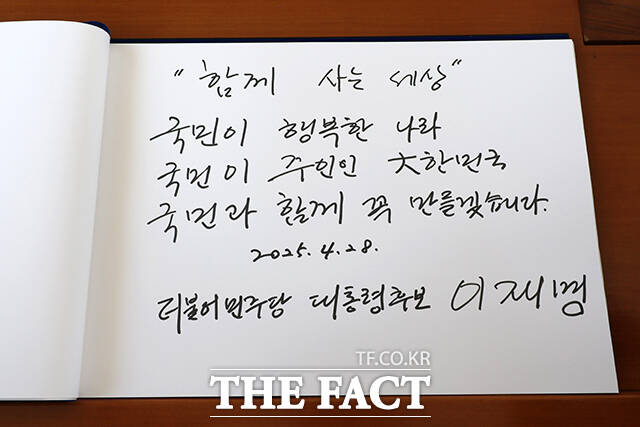 "함께 사는 세상"
국민이 행복한 나라
국민이 주인인 大한민국
국민과 함께 꼭 만들겠습니다.
2025.4.28.
더불어민주당 대통령후보 이재명
TF.CO.KR
THE FACT